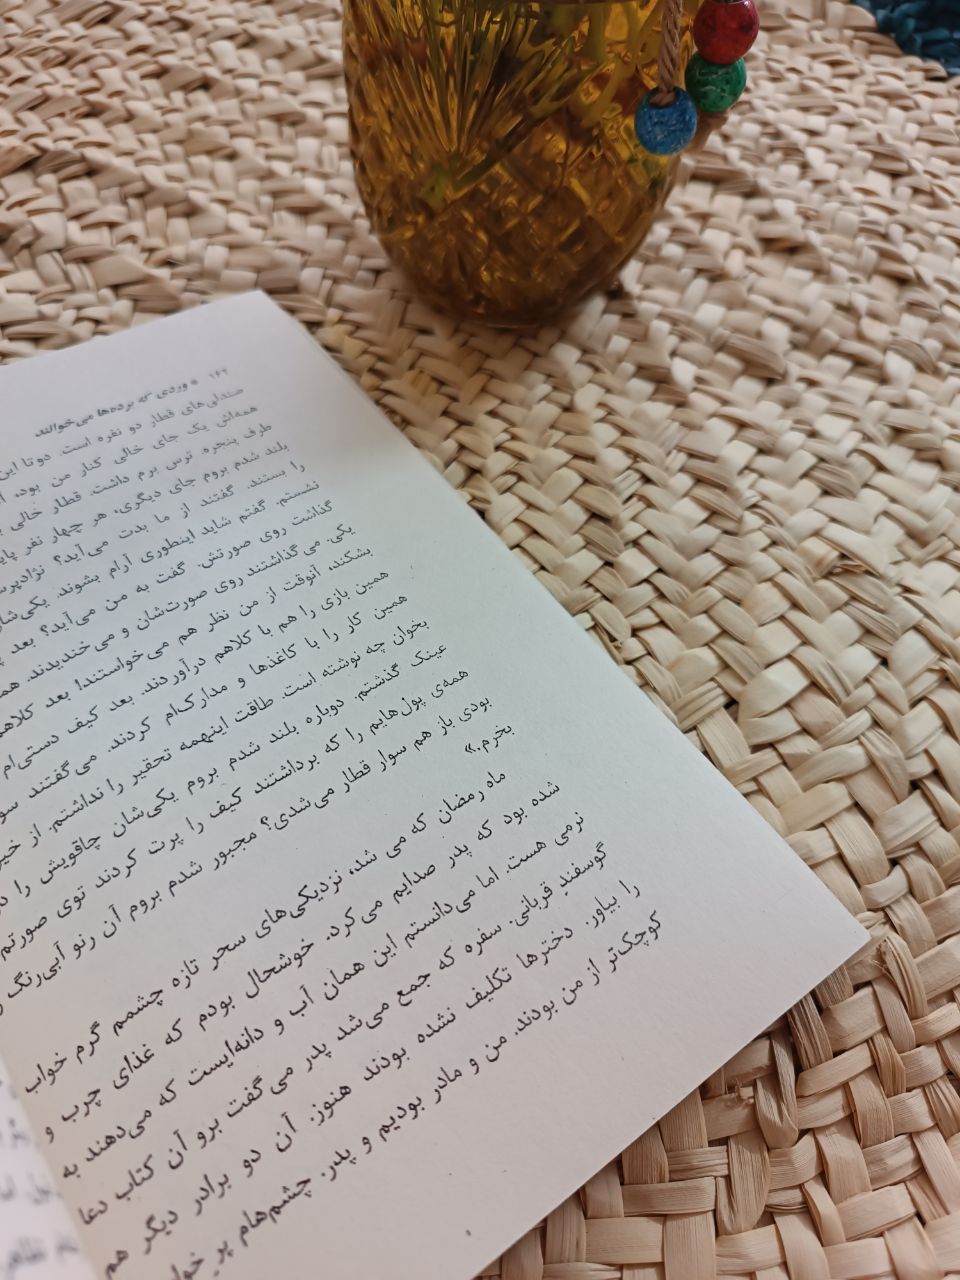 ۱۶۲ * وردی که بره‌ها می‌خوانند
صندلی‌های قطار دو نفره است. دو تا این
همه‌اش یک جای خالی کنار من بود.
طرف پنجره. ترس برم داشت. قطار خالی
بلند شدم بروم جای دیگری، هر چهار نفر
را بستند. گفتند از ما بدت می‌آید؟
نشستم. گفتم شاید اینطوری آرام بشوند.
گذاشت روی صورتش. گفت به من می‌آید؟ بعد
یکی. می‌گذاشتند روی صورت‌شان و می‌خندیدند.
بشکند، آنوقت از من نظر هم می‌خواستند! بعد
همین بازی را هم با کلاهم درآوردند. بعد کیف دستی‌ام
همین کار را با کاغذها و مدارک‌ام کردند. می‌گفتند
بخوان چه نوشته است. طاقت اینهمه تحقیر را نداشتم. از
عینک گذشتم. دوباره بلند شدم بروم یکی‌شان چاقویش را
همه‌ی پول‌هایم را که برداشتند کیف را پرت کردند توی صورتم
بودی باز هم سوار قطار می‌شدی؟ مجبور شدم بروم آن رنو آبی‌رنگ
بخرم.»
ماه رمضان که می شد، نزدیکی‌های سحر تازه چشمم گرم خواب
شده بود که پدر صدایم می‌کرد. خوشحال بودم که غذای چرب و
نرمی هست. اما می‌دانستم این همان آب و دانه‌ایست که می‌دهند به
گوسفندِ قربانی. سفره که جمع می‌شد پدر می‌گفت برو آن کتاب دعا
را بیاور. دخترها تکلیف نشده بودند هنوز. آن دو برادر دیگر هم
کوچک‌تر از من بودند. من و مادر بودیم و پدر. چشم‌هام پرِ